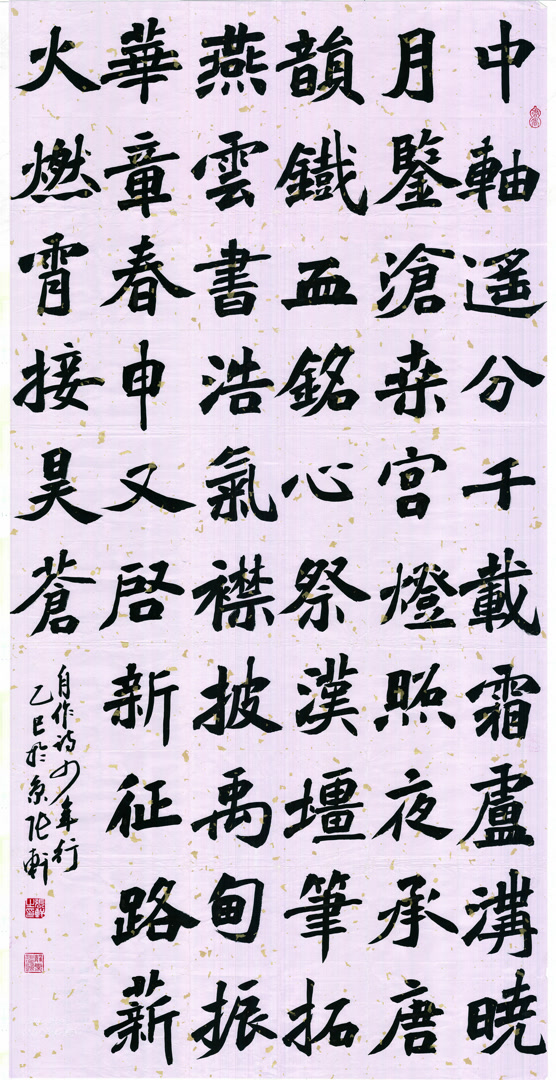 中軸遥分千載霜盧溝曉
月鑒滄桑宮燈照夜承唐
韻鐵血銘心祭漢壇筆拓
燕雲書浩氣襟披禹甸振
華章春申又啓新征路薪
火燃霄接昊蒼
自作詩少年行
乙巳於京張軒